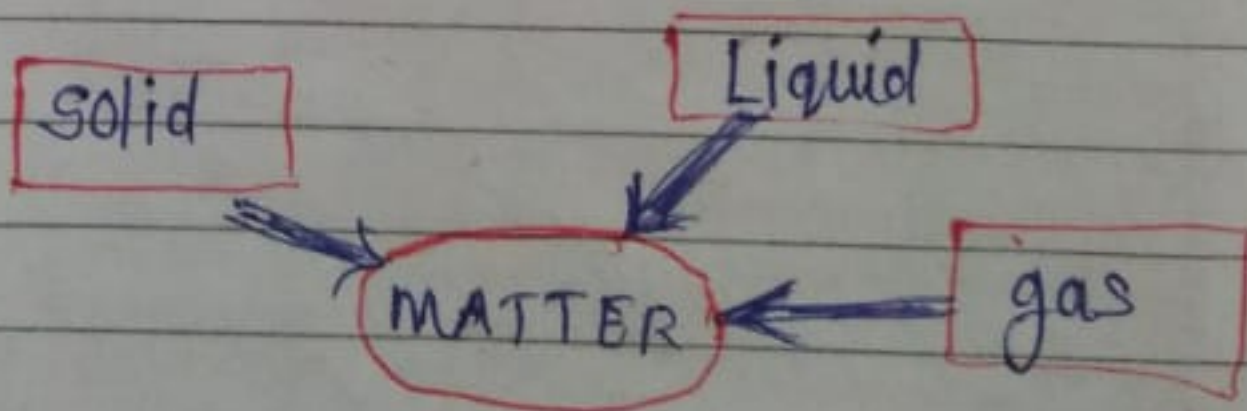 Solid
Liquid
MATTER
gas